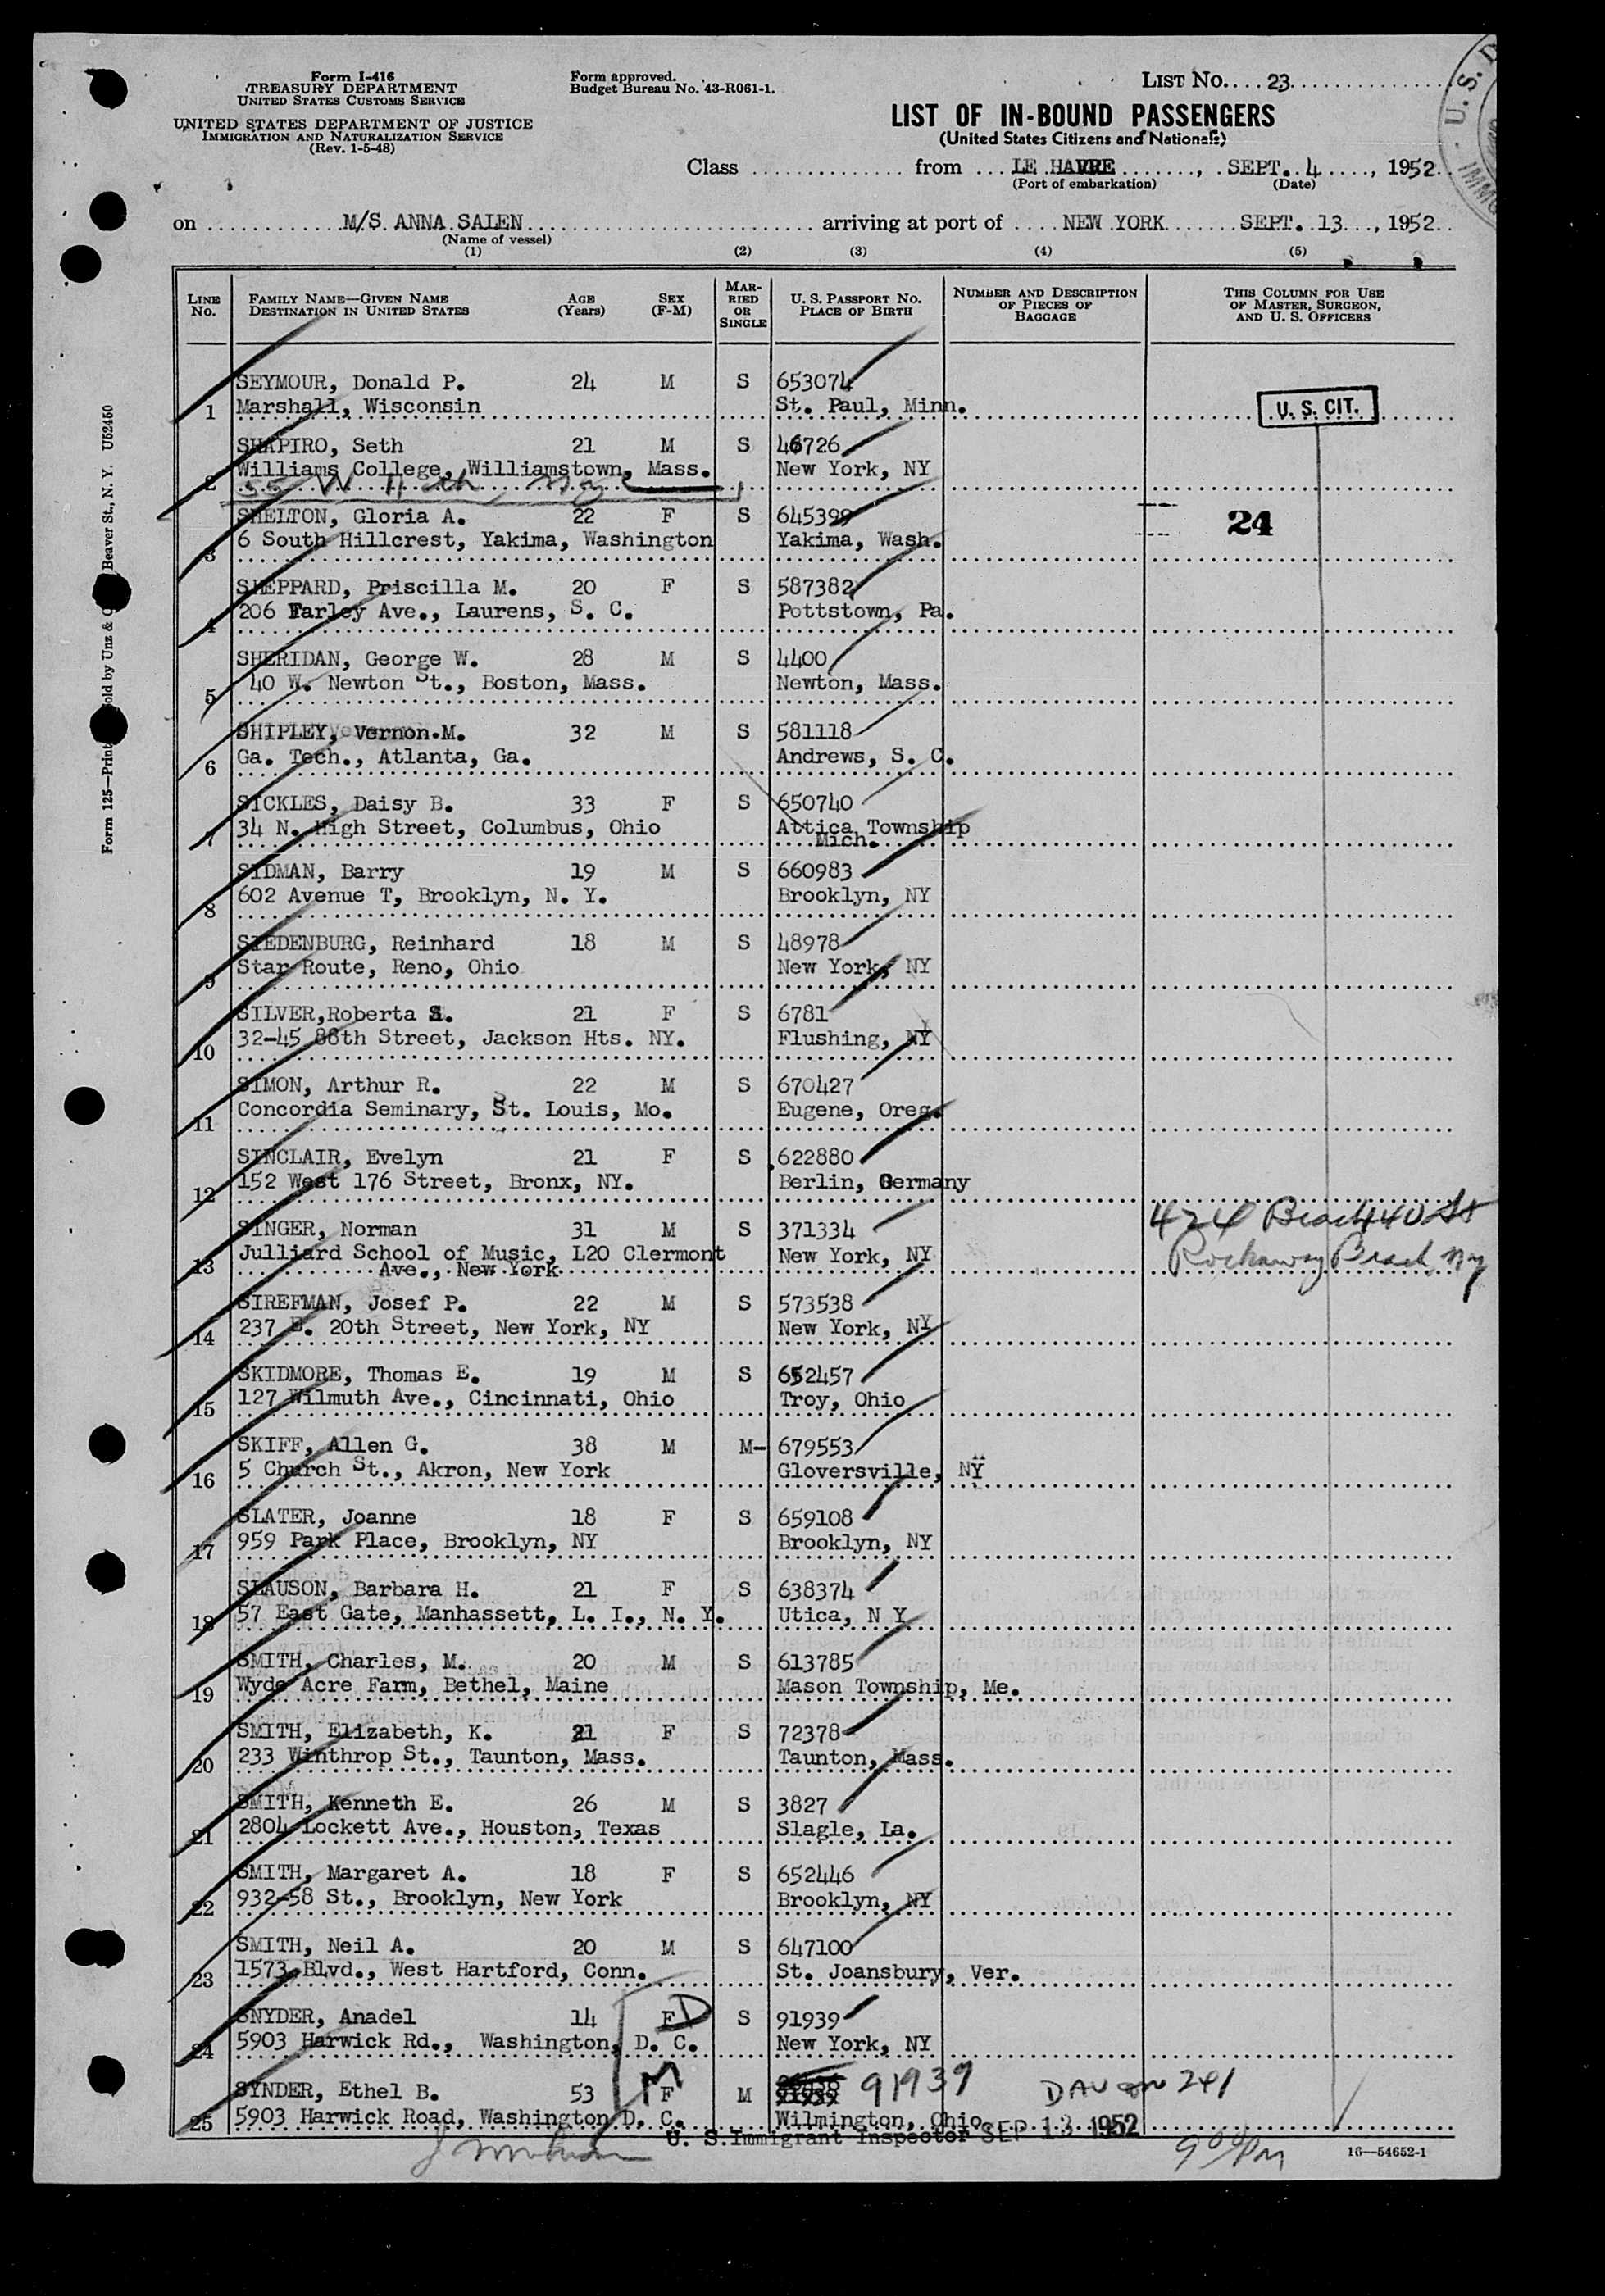 Form I-416
TREASURY DEPARTMENT
UNITED STATES CUSTOMS SERVICE
UNITED STATES DEPARTMENT OF JUSTICE
IMMIGRATION AND NATURALIZATION SERVICE
(Rev. 1-5-48)
Form approved.
Budget Bureau No. 43-R061-1.
LIST No. 23
LIST OF IN-BOUND PASSENGERS
(United States Citizens and Nationals)
Class from LE HAVRE, SEPT. 4, 1952
(Port of embarkation) (Date)
on M/S ANNA SALEN arriving at port of NEW YORK SEPT. 13, 1952
(Name of vessel)
(1) (2) (3) (4) (5)
LINE No. FAMILY NAME—GIVEN NAME DESTINATION IN UNITED STATES AGE (Years) SEX (F-M) MARRIED OR SINGLE U. S. PASSPORT No. PLACE OF BIRTH NUMBER AND DESCRIPTION OF PIECES OF BAGGAGE THIS COLUMN FOR USE OF MASTER, SURGEON, AND U. S. OFFICERS
SEYMOUR, Donald P. 24 M S 653074
1 Marshall, Wisconsin St. Paul, Minn. U. S. CIT.
SHAPIRO, Seth 21 M S 46726
2 Williams College, Williamstown, Mass. New York, NY
55 W 11th, NYC
SHELTON, Gloria A. 22 F S 645399 24
3 6 South Hillcrest, Yakima, Washington Yakima, Wash.
SHEPPARD, Priscilla M. 20 F S 587382
4 206 Farley Ave., Laurens, S. C. Pottstown, Pa.
SHERIDAN, George W. 28 M S 4400
5 40 W. Newton St., Boston, Mass. Newton, Mass.
SHIPLEY, Vernon M. 32 M S 581118
6 Ga. Tech., Atlanta, Ga. Andrews, S. C.
SICKLES, Daisy B. 33 F S 650740
7 34 N. High Street, Columbus, Ohio Attica Township
Mich.
SIDMAN, Barry 19 M S 660983
8 602 Avenue T, Brooklyn, N. Y. Brooklyn, NY
SIEDENBURG, Reinhard 18 M S 48978
9 Star Route, Reno, Ohio New York, NY
SILVER,Roberta S. 21 F S 6781
10 32-45 88th Street, Jackson Hts. NY. Flushing, NY
SIMON, Arthur R. 22 M S 670427
11 Concordia Seminary, St. Louis, Mo. Eugene, Oreg.
SINCLAIR, Evelyn 21 F S 622880
12 152 West 176 Street, Bronx, NY. Berlin, Germany
SINGER, Norman 31 M S 371334 424 Beach 40 St
13 Julliard School of Music, L20 Clermont New York, NY Rockaway Beach, NY
Ave., New York
SIREFMAN, Josef P. 22 M S 573538
14 237 E. 20th Street, New York, NY New York, NY
SKIDMORE, Thomas E. 19 M S 652457
15 127 Wilmuth Ave., Cincinnati, Ohio Troy, Ohio
SKIFF, Allen G. 38 M M- 679553
16 5 Church St., Akron, New York Gloversville, NY
SLATER, Joanne 18 F S 659108
17 959 Park Place, Brooklyn, NY Brooklyn, NY
SLAUSON, Barbara H. 21 F S 638374
18 57 East Gate, Manhassett, L. I., N. Y. Utica, N Y
SMITH, Charles, M. 20 M S 613785
19 Wyde Acre Farm, Bethel, Maine Mason Township, Me.
SMITH, Elizabeth, K. 21 F S 72378
20 233 Winthrop St., Taunton, Mass. Taunton, Mass.
SMITH, Kenneth E. 26 M S 3827
21 2804 Lockett Ave., Houston, Texas Slagle, La.
SMITH, Margaret A. 18 F S 652446
22 932-58 St., Brooklyn, New York Brooklyn, NY
SMITH, Neil A. 20 M S 647100
23 1573 Blvd., West Hartford, Conn. St. Joansbury, Ver.
SNYDER, Anadel 14 F D S 91939
24 5903 Harwick Rd., Washington, D. C. New York, NY
SYNDER, Ethel B. 53 M F M 91939
25 5903 Harwick Road, Washington D. C. Wilmington, Ohio
U. S. Immigrant Inspector SEP 13 1952
900 PM
16—54652-1
Form 125—Printed Sold by Unz & Beaver St., N. Y. U52450